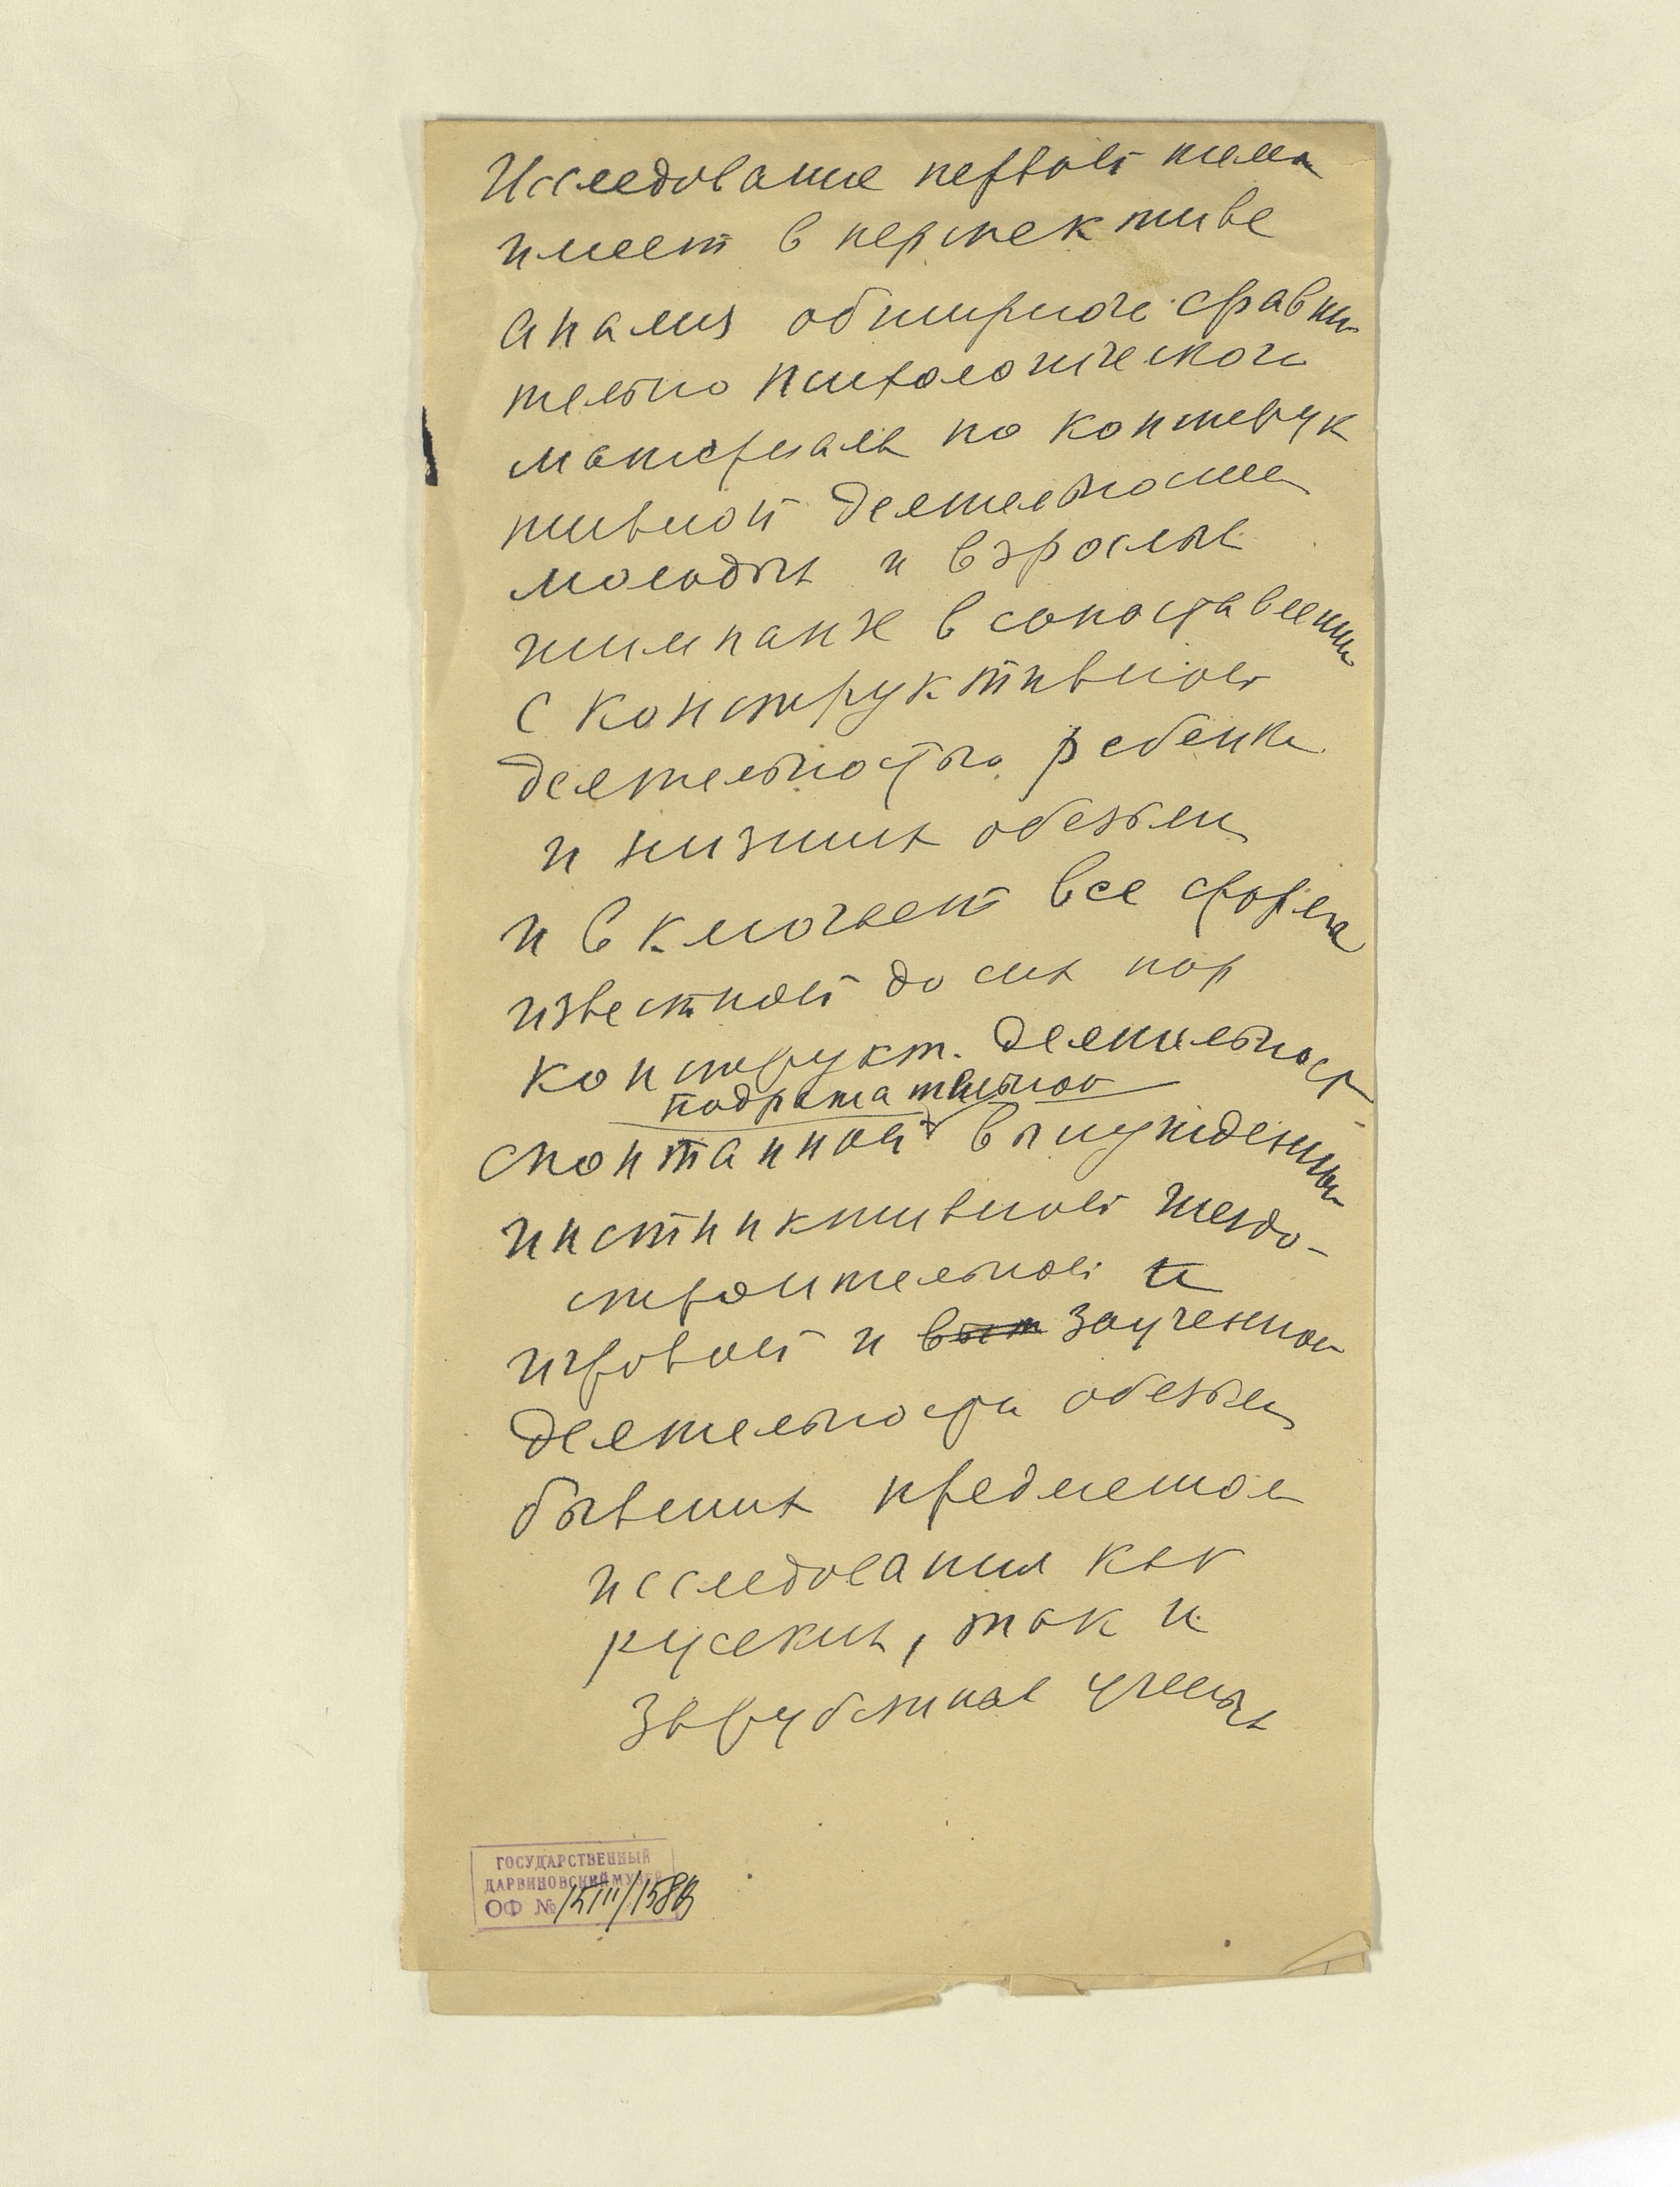 Исследование первой темы
имеет в перспективе
анализ обширного сравни-
тельно психологического
материала по конструк
тивной деятельности
молодых и взрослых
шимпанзе в сопоставлении
с конструктивной
деятельностью ребенка
и низших обезьян
и включает все формы
известной до сих пор
конструкт. деятельност
подражательной
спонтанной вынужденной
инстинктивной гнездо-
строительной и
игровой и заученной
деятельности обезьян
бывших предметом
исследования как
русских, так и
зарубежных ученых
ГОСУДАРСТВЕННЫЙ
ДАРВИНОВСКИЙ МУЗЕЙ
ОФ №